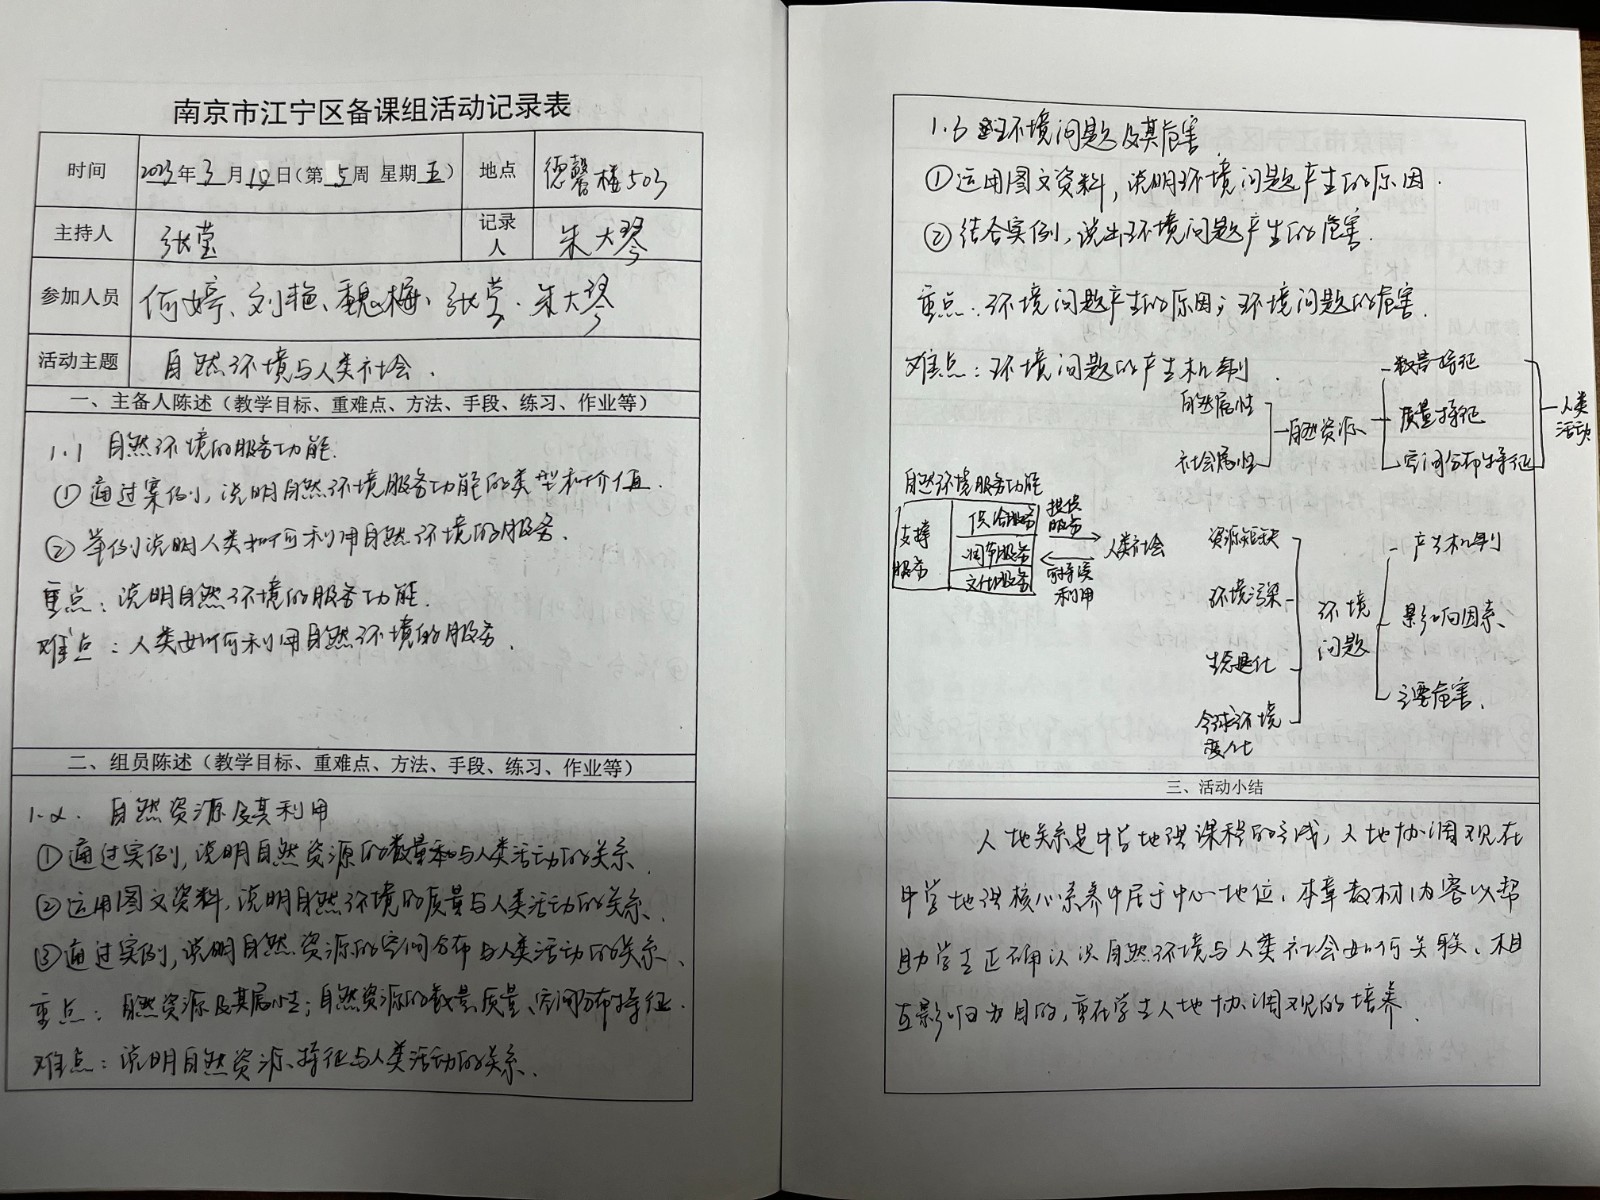 南京市江宁区备课组活动记录表
时间 2023年3月10日(第5周 星期五) 地点 德馨楼503
主持人 张莹 记录人 朱大琴
参加人员 何婷、刘艳、魏梅、张莹、朱大琴
活动主题 自然环境与人类社会.
一、主备人陈述（教学目标、重难点、方法、手段、练习、作业等）
1.1 自然环境的服务功能.
①通过案例，说明自然环境服务功能的类型和价值.
②举例说明人类如何利用自然环境的服务.
重点：说明自然环境的服务功能.
难点：人类如何利用自然环境的服务.
二、组员陈述（教学目标、重难点、方法、手段、练习、作业等）
1.2. 自然资源及其利用
①通过实例，说明自然资源的数量与人类活动的关系.
②运用图文资料，说明自然环境的质量与人类活动的关系.
③通过实例，说明自然资源的空间分布与人类活动的关系.
重点：自然资源及其属性；自然资源的数量、质量、空间分布特征.
难点：说明自然资源特征与人类活动的关系.
1.3 环境问题及其危害
①运用图文资料，说明环境问题产生的原因.
②结合实例，说出环境问题产生的危害.
重点：环境问题产生的原因；环境问题的危害.
难点：环境问题的产生机制.
自然属性
社会属性
自然资源
数量特征
质量特征
空间分布特征
人类活动
自然环境服务功能
支撑服务
供给服务
调节服务
文化服务
提供服务
可持续利用
人类社会
资源短缺
环境污染
生态退化
全球环境变化
环境问题
产生机制
影响因素
主要危害.
三、活动小结
人地关系是中学地理课程的主线，人地协调观在
中学地理核心素养中居于中心地位，本章教材内容以帮
助学生正确认识自然环境与人类社会如何关联、相
互影响为目的，重在学生人地协调观的培养.